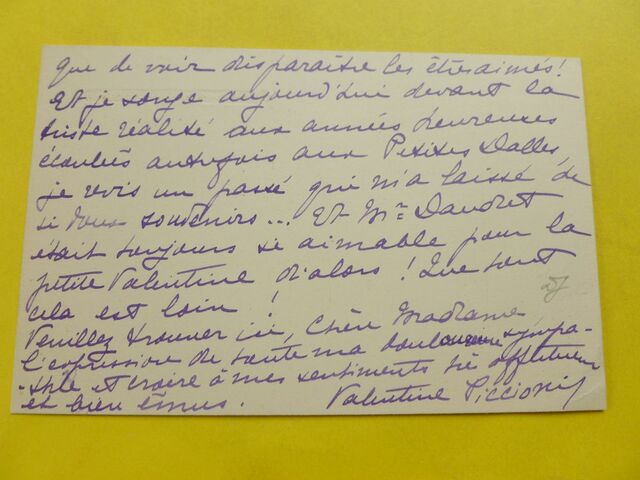 que de voir disparaître les êtres aimés !
Et je songe aujourd'hui devant la
triste réalité aux années heureuses
écoulées autrefois aux Petites Dalles,
je revis un passé qui m'a laissé de
si doux souvenirs... Et Mme Daudet
était toujours si aimable pour la
petite Valentine d'alors ! Que tout
cela est loin !
Veuillez trouver ici, Chère Madame
l'expression de toute ma douloureuse sympa-
-thie et croire à mes sentiments si affectueux
et bien émus. Valentine Piccioni